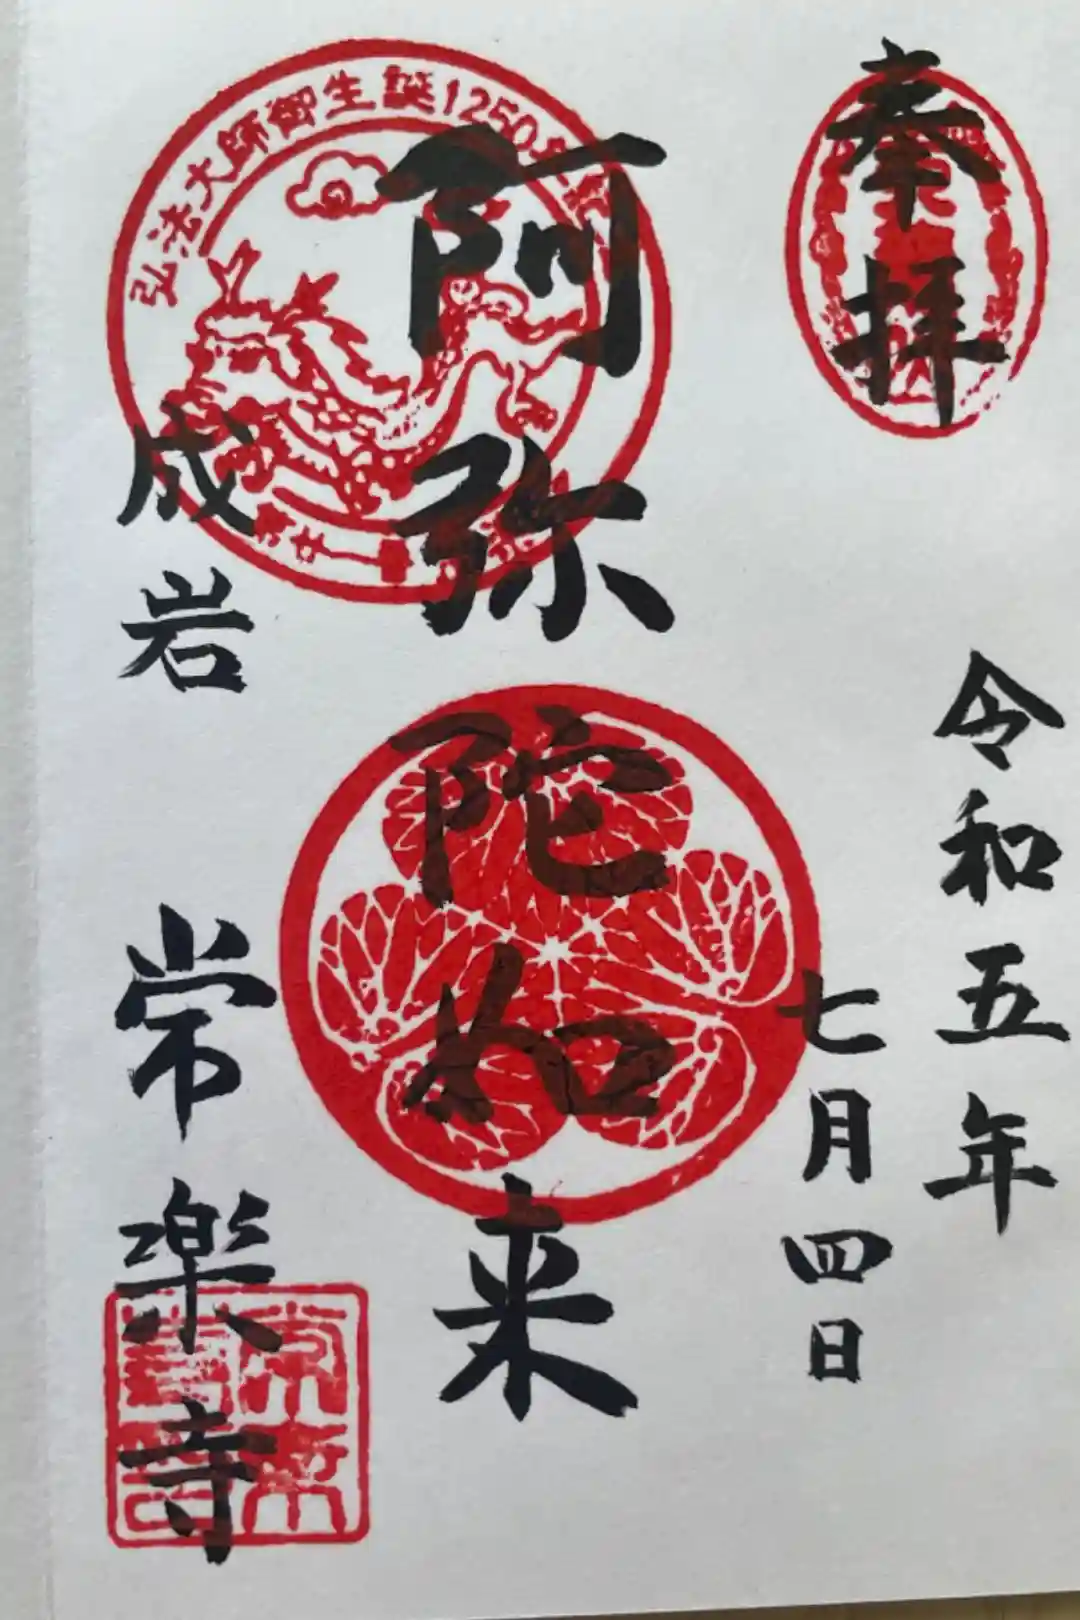 奉拝
令和五年
七月四日
弘法大師御生誕1250年
阿弥陀如来
成岩
常楽寺